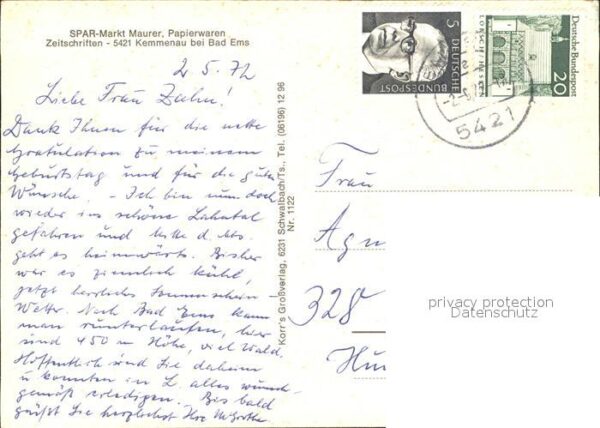 SPAR-Markt Maurer, Papierwaren
Zeitschriften - 5421 Kemmenau bei Bad Ems
2 5. 72
Liebe Frau Zahn!
Dank Ihnen für die nette
Gratulation zu meinem
Geburtstag und für die guten
Wünsche. - Ich bin nun doch
wieder ins schöne Lahntal
gefahren und Mitte d. Mts.
geht es heimwärts. Bisher
war es ziemlich kühl,
jetzt herrliches Sonnenschein-
Wetter. Nach Bad Ems kann
man runterlaufen, hier
sind 450 m Höhe, viel Wald.
Hoffentlich sind Sie daheim
u. konnten in L alles wunsch-
gemäß erledigen. Bis bald
grüßt Sie herzlichst Ihre
Korr's Großverlag, 6231 Schwalbach/Ts., Tel. (06196) 12 96
Nr. 1122
5
DEUTSCHE
BUNDESPOST
Deutsche Bundespost
LORSCH/HESSEN
20
5421
Frau
Agn
328
Hün
privacy protection
Datenschutz